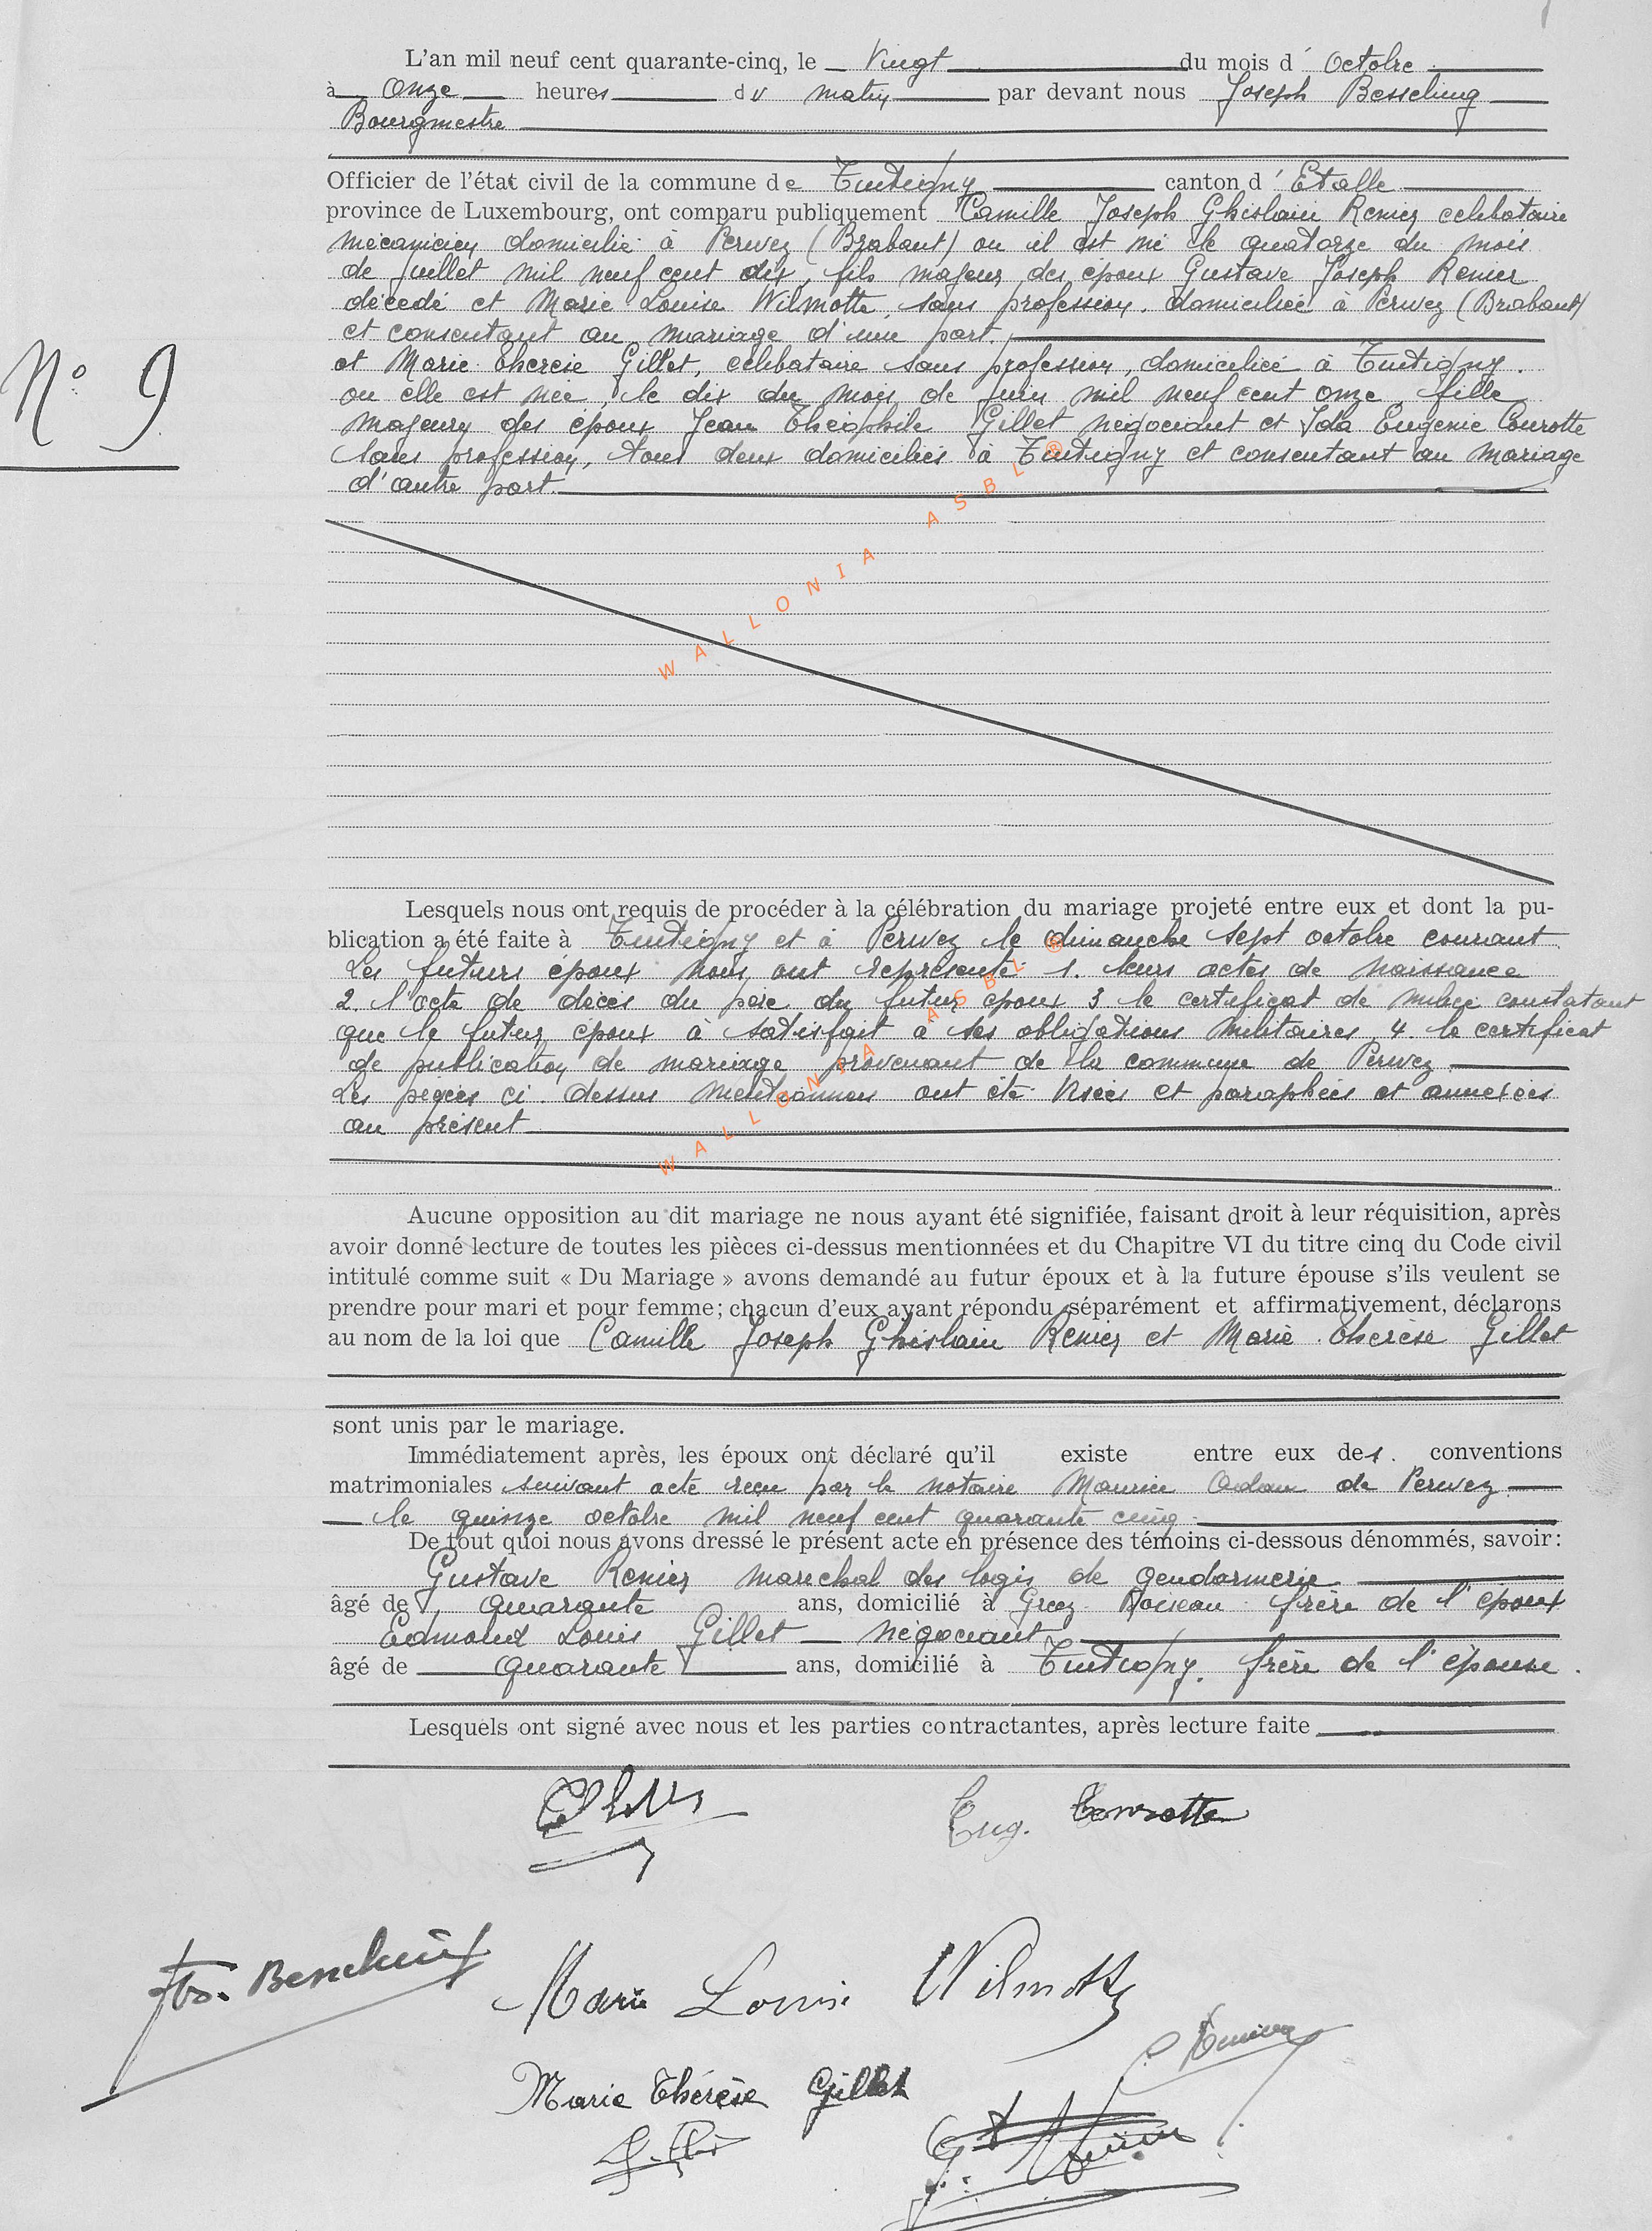 L'an mil neuf cent quarante-cinq, le vingt du mois d' octobre
à Onze heures du matin par devant nous Joseph Besseling
Bourgmestre
Officier de l'état civil de la commune de Tintigny canton d' Etalle
province de Luxembourg, ont comparu publiquement Camille Joseph Ghislain Renier celibataire
mécanicien domicilié à Perwez (Brabant) ou il est né le quatorze du mois
de juillet mil neuf cent dix, fils majeur des époux Gustave Joseph Renier
décédé et Marie Louise Wilmotte, sans profession, domiciliée à Perwez (Brabant)
et consentant au mariage d'une part.
et Marie Therèse Gillet, célibataire sans profession, domiciliée à Tintigny.
ou elle est née, le dix du mois de juin mil neuf cent onze, fille
majeure des époux Jean Théophile Gillet négociant et Ida Eugenie Courotte
sans profession, tous deux domiciliés à Tintigny et consentant au mariage
d'autre part.
N° 9
WALLONIA ASBL ®
Lesquels nous ont requis de procéder à la célébration du mariage projeté entre eux et dont la pu-
blication a été faite à Tintigny et à Perwez le dimanche sept octobre courant
Les futurs époux nous ont représenté 1. leurs actes de naissance
2. l'acte de décès du père du futur époux 3 le certificat de milice constatant
que le futur époux à satisfait à ses obligations militaires, 4. le certificat
de publication de mariage provenant de la commune de Perwez
Les pièces ci-dessus mentionnées ont été visées et paraphées et annexées
au présent
WALLONIA ASBL ®
Aucune opposition au dit mariage ne nous ayant été signifiée, faisant droit à leur réquisition, après
avoir donné lecture de toutes les pièces ci-dessus mentionnées et du Chapitre VI du titre cinq du Code civil
intitulé comme suit « Du Mariage » avons demandé au futur époux et à la future épouse s'ils veulent se
prendre pour mari et pour femme; chacun d'eux ayant répondu séparément et affirmativement, déclarons
au nom de la loi que Camille Joseph Ghislain Renier et Marie Therèse Gillet
sont unis par le mariage.
Immédiatement après, les époux ont déclaré qu'il existe entre eux des conventions
matrimoniales suivant acte reçu par le notaire Maurice Adam de Perwez
le quinze octobre mil neuf cent quarante cinq
De tout quoi nous avons dressé le présent acte en présence des témoins ci-dessous dénommés, savoir:
Gustave Renier marechal des logis de gendarmerie
âgé de quarante ans, domicilié à Grez Doiceau frère de l'époux
Edmond Louis Gillet négociant
âgé de quarante ans, domicilié à Tintigny, frère de l'épouse.
Lesquels ont signé avec nous et les parties contractantes, après lecture faite
Eug. Courotte
Marie Louise Wilmotte
Marie Thérèse Gillet